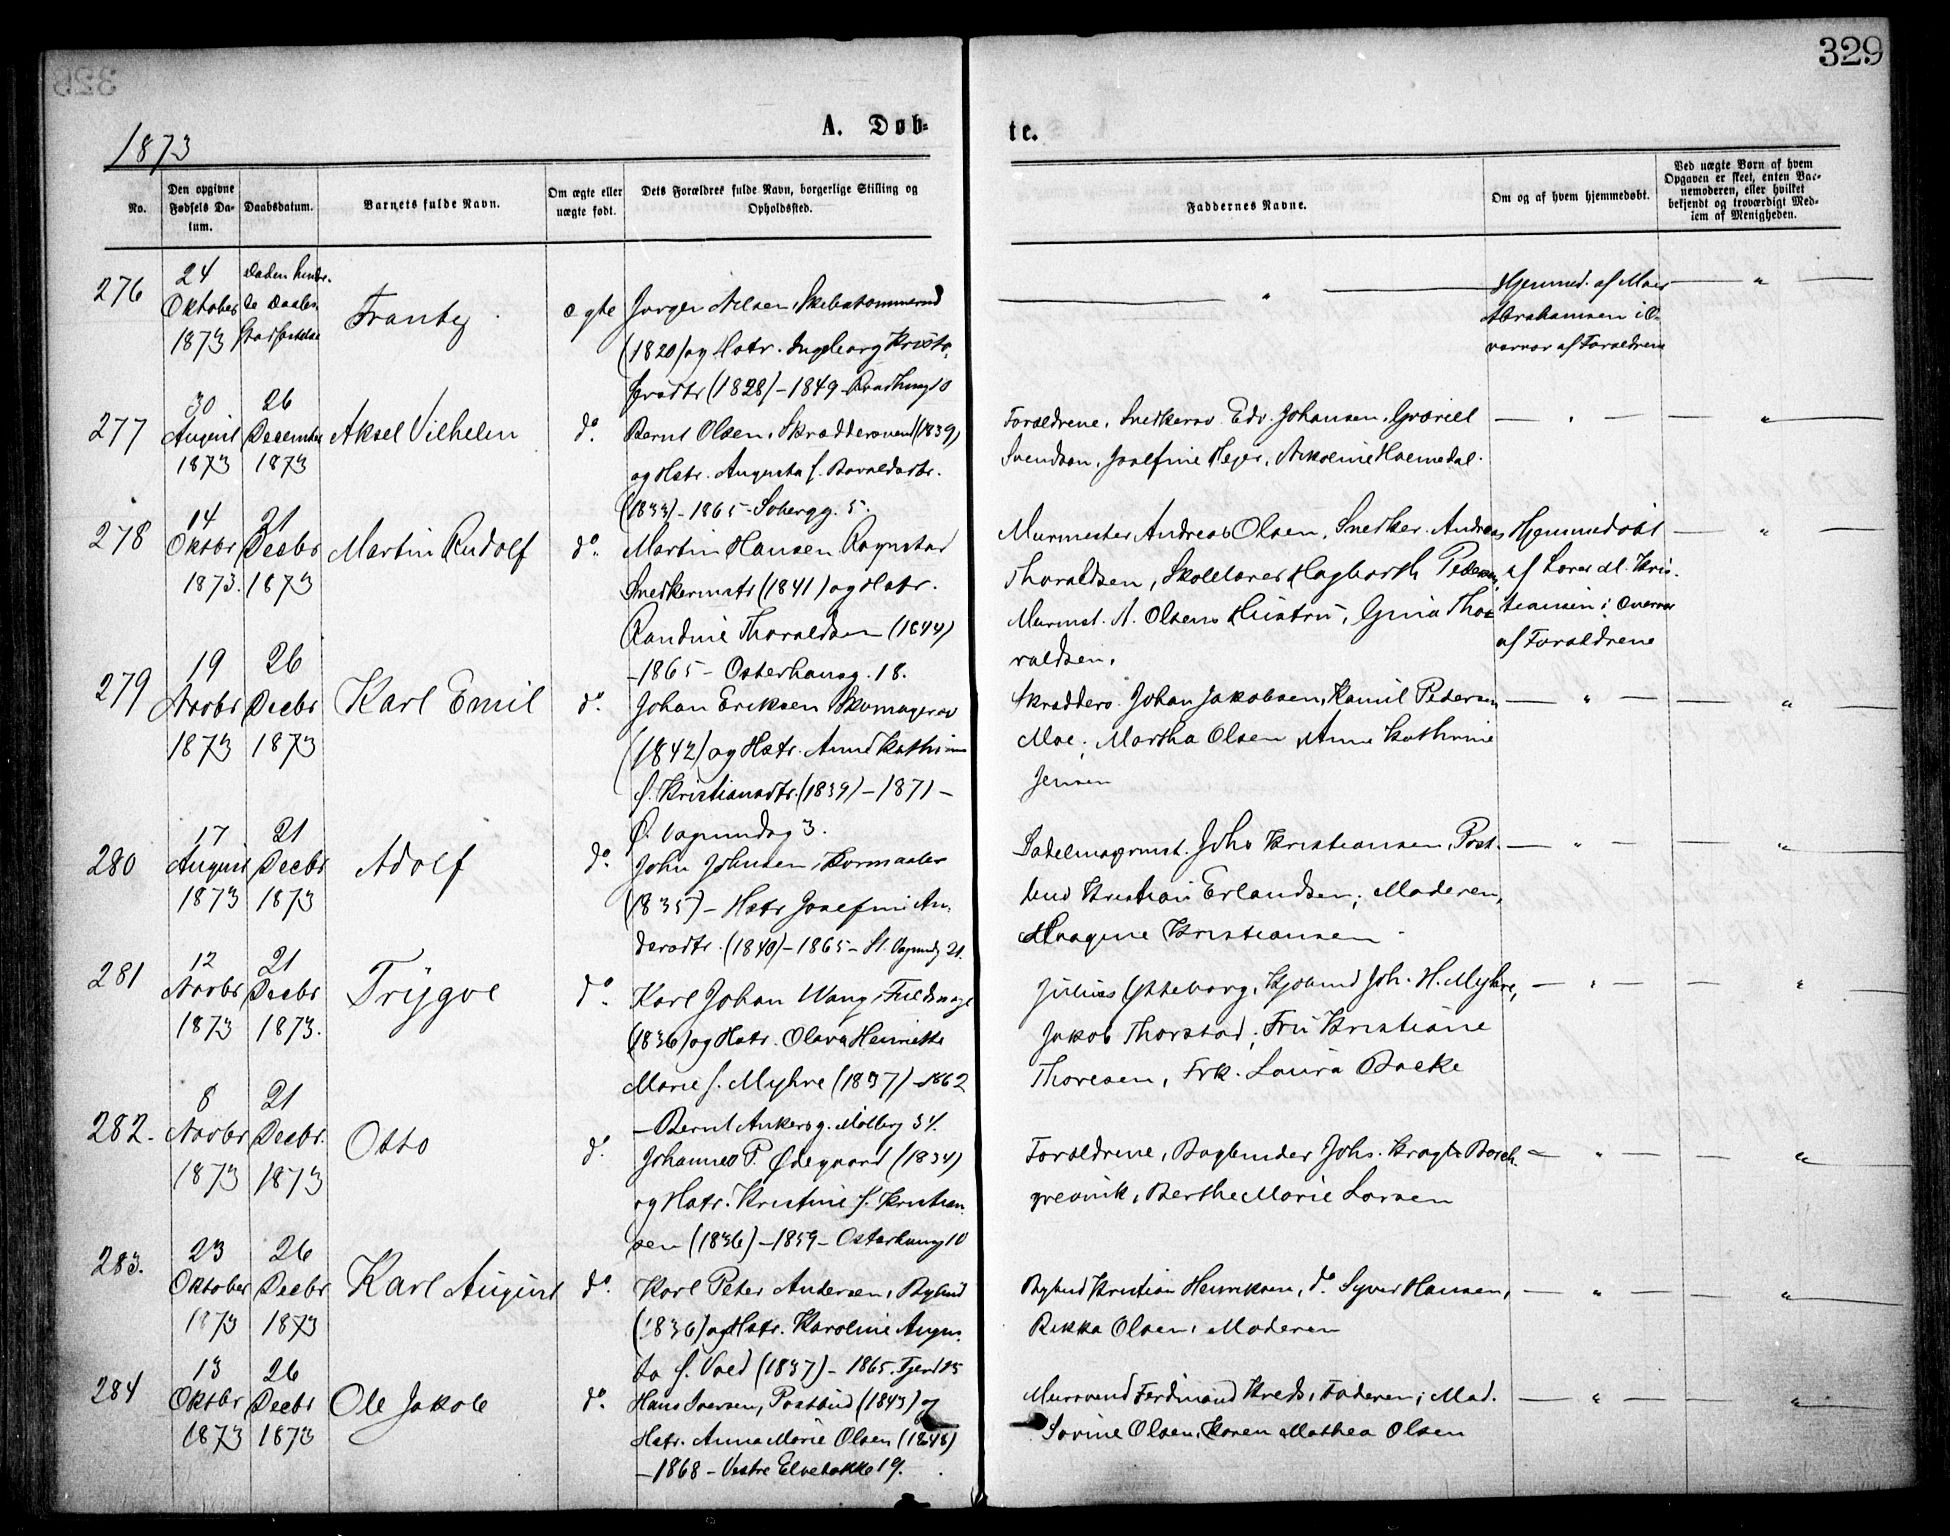 329
1873
A. Døb-
te.
No.
Den opgivne
Fødsels Da-
tum.
Daabsdatum.
Barnets fulde Navn.
Om ægte eller
uægte født.
Dets Forældres fulde Navn, borgerlige Stilling og
Opholdssted.
Faddernes Navne.
Om og af hvem hjemmedøbt.
Ved uægte Børn af hvem
Opgaven er skeet, enten Bar-
nemoderen, eller hvilket
bekjendt og troværdigt Med-
lem af Menigheden.
276
24
Oktober
1873
Døden hindre-
de Daabens
Stadfæstelse
Frantz
egte
Jørgen Nilsen, Skibstømmermd
(1820) og Hstr. Ingeborg Kristo-
fersdtr (1828) - 1849 -
Hjemmed. af
Abrahamsen i O-
vervær af Forældrene
277
30
August
1873
26
December
1873
Aksel Vilhelm
do.
Bernt Olsen, Skræddersvend (1839)
og Hstr. Augusta f.
(1833) - 1865 - 5.
Forældrene, Snedkersv. Edv. Johansen,
Svendsen, Josefine
278
14
Oktbr
1873.
21
Decbr
1873
Martin Rudolf
do.
Martin Hansen Rognstad
Snedkermstr (1841) og Hstr.
Randine Thoraldsen (1844)
- 1865 - Osterhausg. 18.
Murmester Andreas Olsen, Snedker Andreas
Thoraldsen, Skolelærer Hagbarth Pedersen,
Murmst. A. Olsens Hustru, Gina Tho-
raldsen.
Hjemmedøbt
af Lærer M. Kris-
tiansen i Overvær
af Forældrene
279
19
Novbr
1873
26
Decbr
1873
Karl Emil
do.
Johan Eriksen Skomagersv
(1842) og Hstr. Anne Kathrine
f. Kristiansdtr. (1839) - 1871 -
Ø. Vognmandsg 3.
Skrædders. Johan Jakobsen, Kamil Pedersen
Moe, Martha Olsen, Anne Kathrine
Jensen
280
17
August
1873
21
Decbr
1873
Adolf
do.
John Johnsen,
(1835) - Hstr Josefine An-
dersdtr. (1840) - 1865 - St. Vognmdg 21.
Sadelmagermst. Johs Kristiansen, Post-
bud Kristian Erlandsen, Moderen,
Kristiansen
281
12
Novbr
1873
21
Decbr
1873.
Trygve
do.
Karl Johan Wang,
(1836) og Hstr. Olava Henriette
Marie f. Myhre (1837) - 1862
- Bernt Ankersg. Mølberg 34.
Julius Ytteborg, Kjøbmd Joh. H. Myhre,
Jakob Thorstad, Fru Kristiane
Thoresen, Frk. Laura Backe
282.
8
Novbr
1873
21
Decbr.
1873
Otto
do.
Johannes P. Ødegaard (1834)
og Hstr. Kristine f. Kristian-
sen (1836) - 1859 - Osterhausg 10
Forældrene, Bogbinder Johs.
Berthe Marie Larsen
283.
23
Oktober
1873
26
Decbr
1873
Karl August
do.
Karl Peter Andersen,
(1836) og Hstr. Karoline Augus-
ta f. (1837) - 1865.
Kristian Henriksen, do. Syver Hansen,
Rikka Olsen, Moderen
284
13
Oktbr
1873
26
Decbr
1873
Ole Jakob
do.
Hans Iversen, Postbud (1843) og
Hstr. Anna Marie Olsen (1848)
- 1868 - Vestre Elvebakke 19.
Mursvend Ferdinand Faderen, Mad.
Sørine Olsen, Karen Mathea Olsen